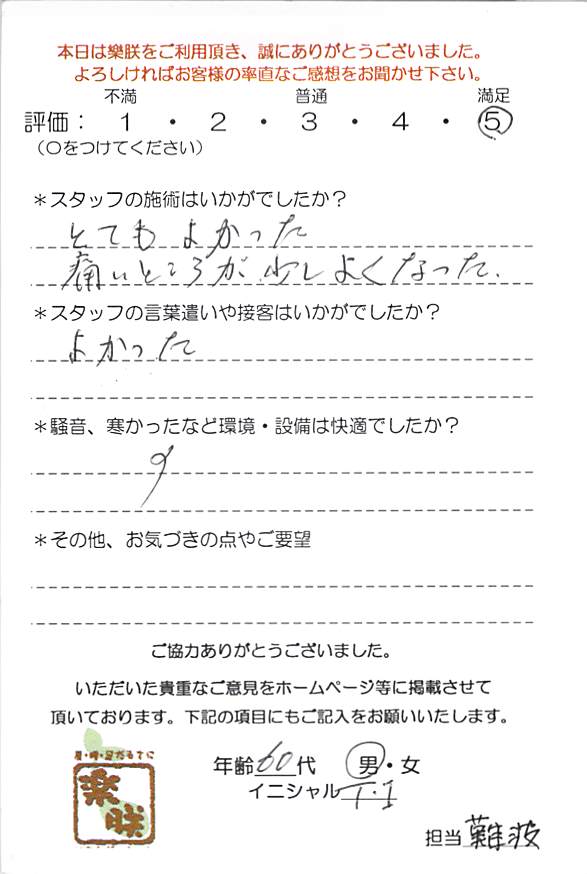 本日は樂朕をご利用頂き、誠にありがとうございました。
よろしければお客様の率直なご感想をお聞かせ下さい。
不満 普通 満足
評価： 1 ・ 2 ・ 3 ・ 4 ・ 5
（○をつけてください）
＊スタッフの施術はいかがでしたか？
とても よかった
痛いところが 少しよくなった.
＊スタッフの言葉遣いや接客はいかがでしたか？
よかった
＊騒音、寒かったなど環境・設備は快適でしたか？
＊その他、お気づきの点やご要望
ご協力ありがとうございました。
いただいた貴重なご意見をホームページ等に掲載させて
頂いております。下記の項目にもご記入をお願いいたします。
楽朕
年齢 60 代 男・女
イニシャル T・I
担当 難波